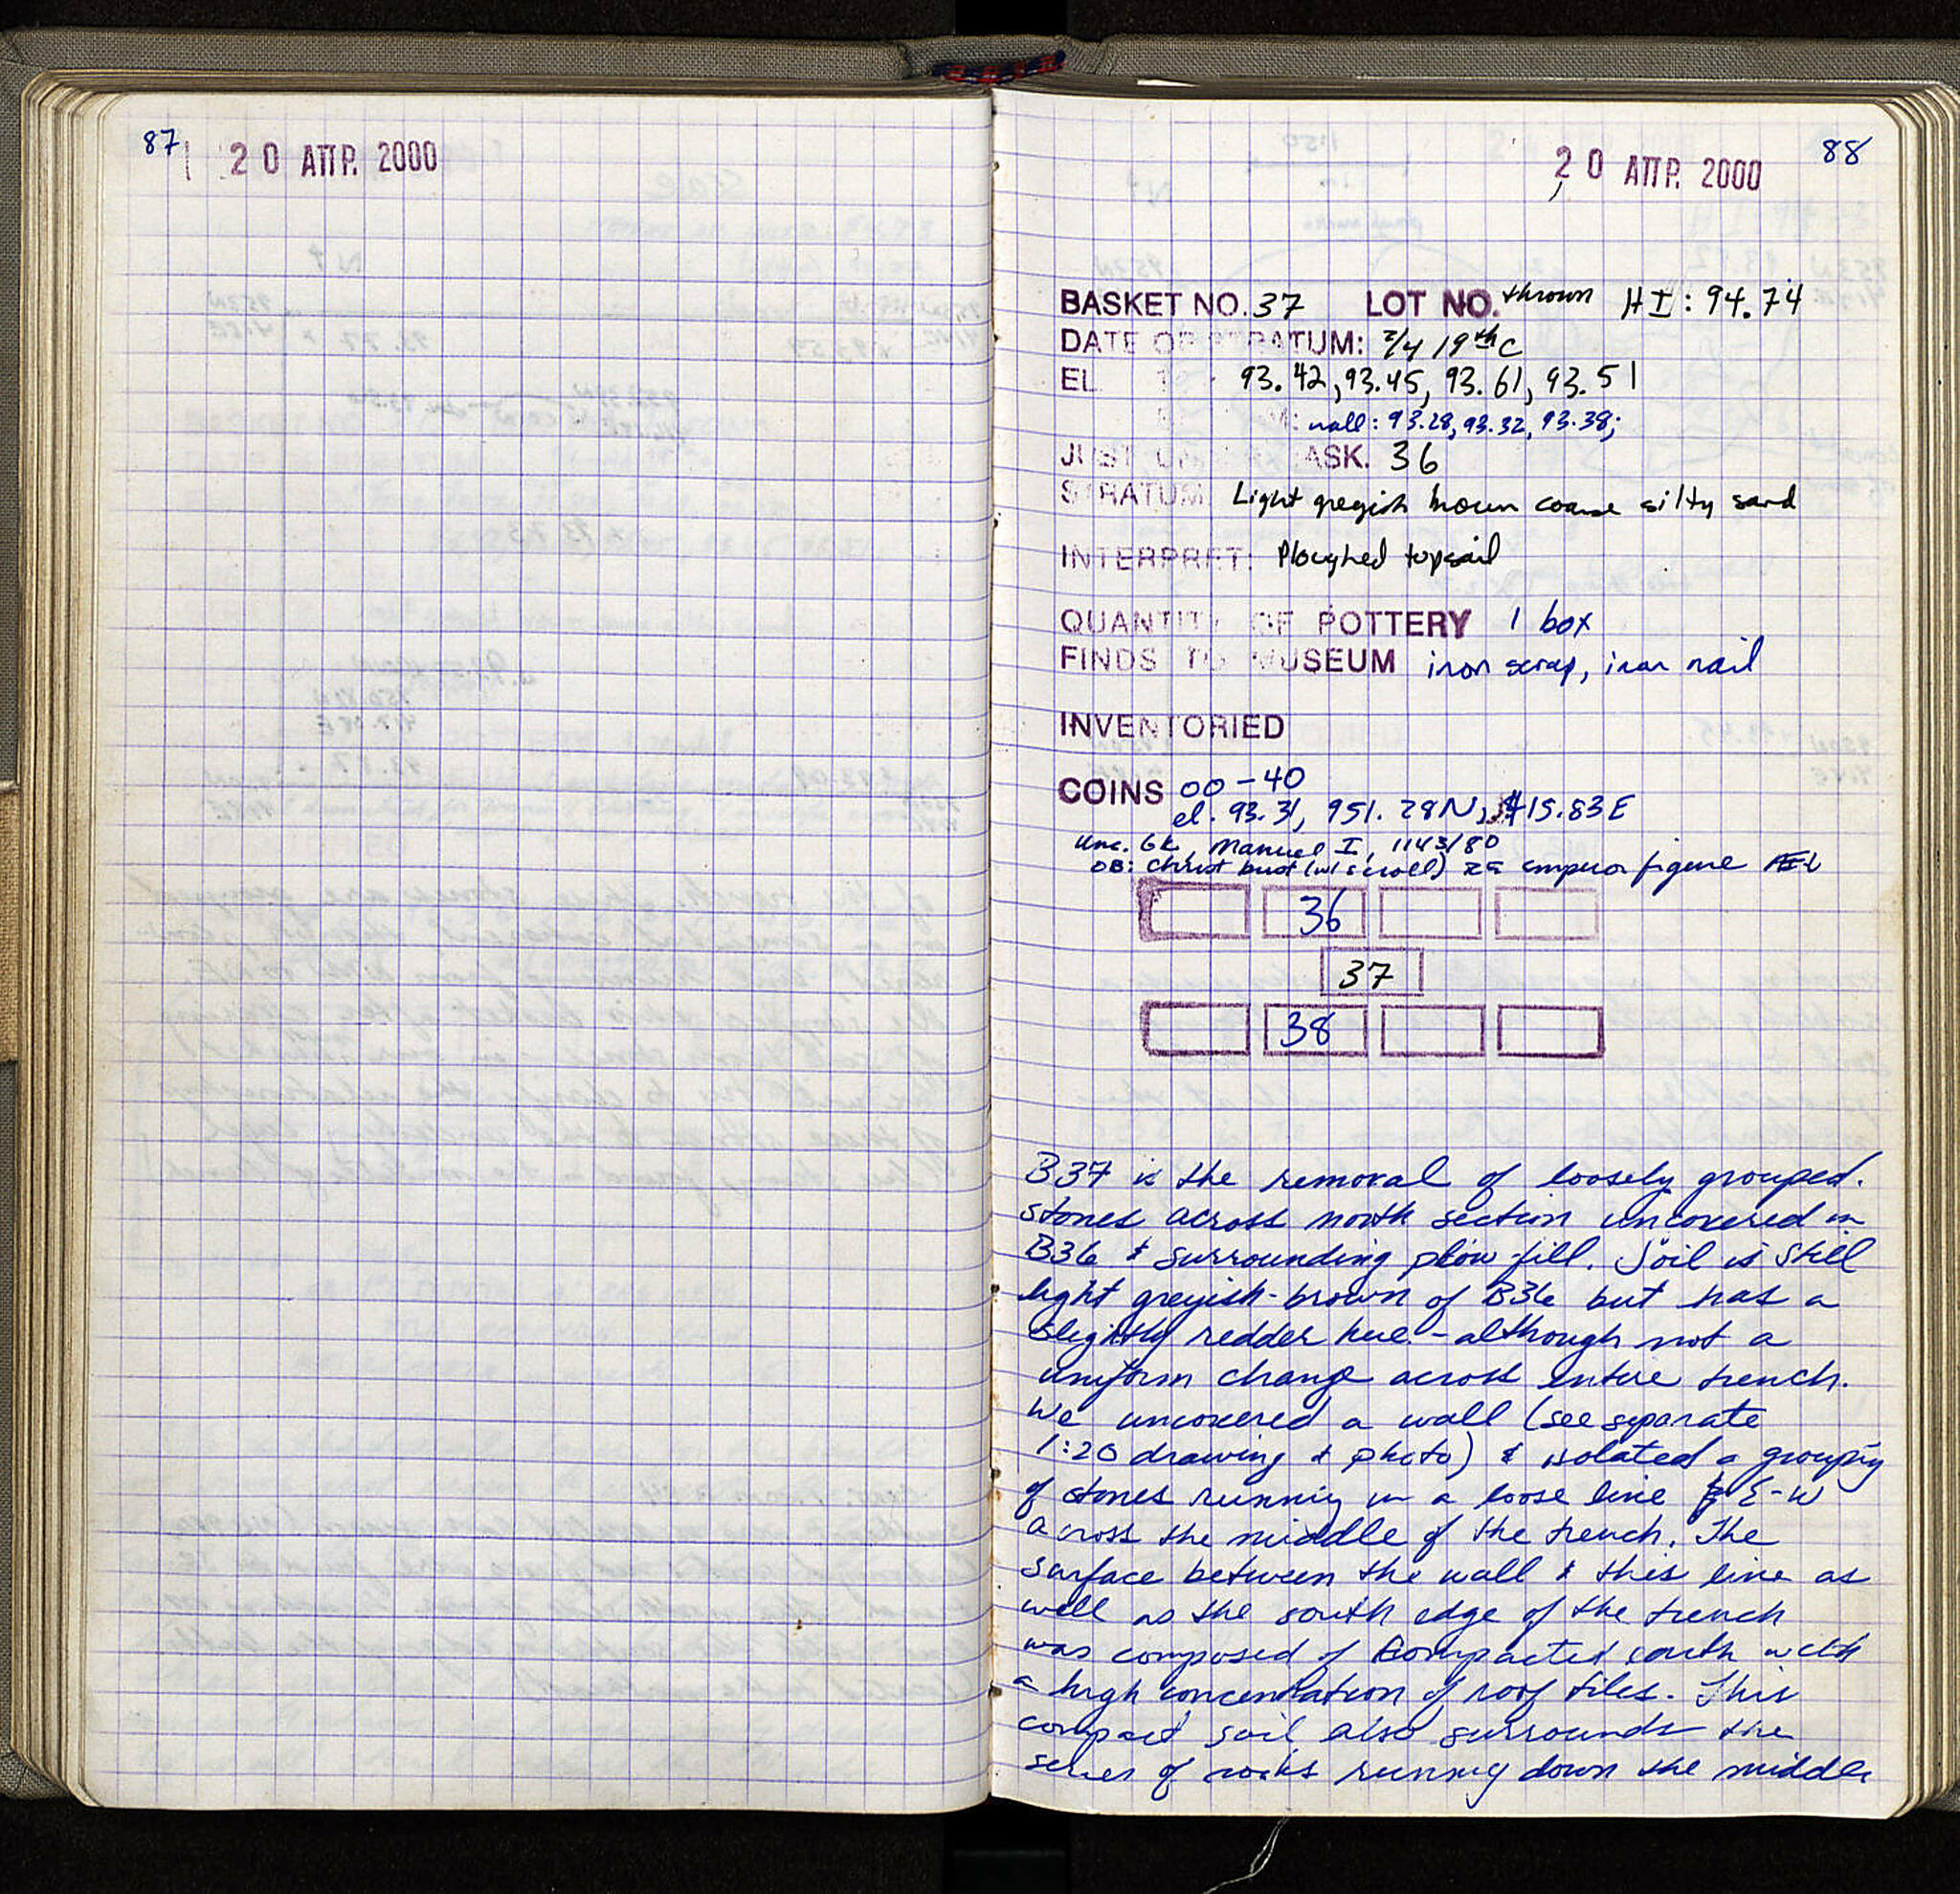 87
20 ΑΠΡ. 2000
88
20 ΑΠΡ. 2000
BASKET NO. 37 LOT NO. thrown HI: 94.74
DATE OF STRATUM: 3/4 19th C
EL 93.42, 93.45, 93.61, 93.51
wall: 93.28, 93.32, 93.38;
JUST ASK. 36
STRATUM Light greyish brown coarse silty sand
INTERPRET: Ploughed topsoil
QUANTITY OF POTTERY 1 box
FINDS TO MUSEUM iron scrap, iron nail
INVENTORIED
COINS 00-40
el. 93.31, 951.28N, 415.83E
Unc. Gk, Manuel I, 1143/80
OB: Christ bust (w/ scroll) emperor figure
36
37
38
B37 is the removal of loosely grouped.
stones across north section uncovered in
B36 & surrounding plow fill. Soil is still
light greyish-brown of B36 but has a
slightly redder hue - although not a
uniform change across entire trench.
We uncovered a wall (see separate
1:20 drawing & photo) & isolated a grouping
of stones running in a loose line E-W
across the middle of the trench. The
surface between the wall & this line as
well as the south edge of the trench
was composed of compacted earth with
a high concentration of roof tiles. This
compact soil also surrounds the
series of rocks running down the middle